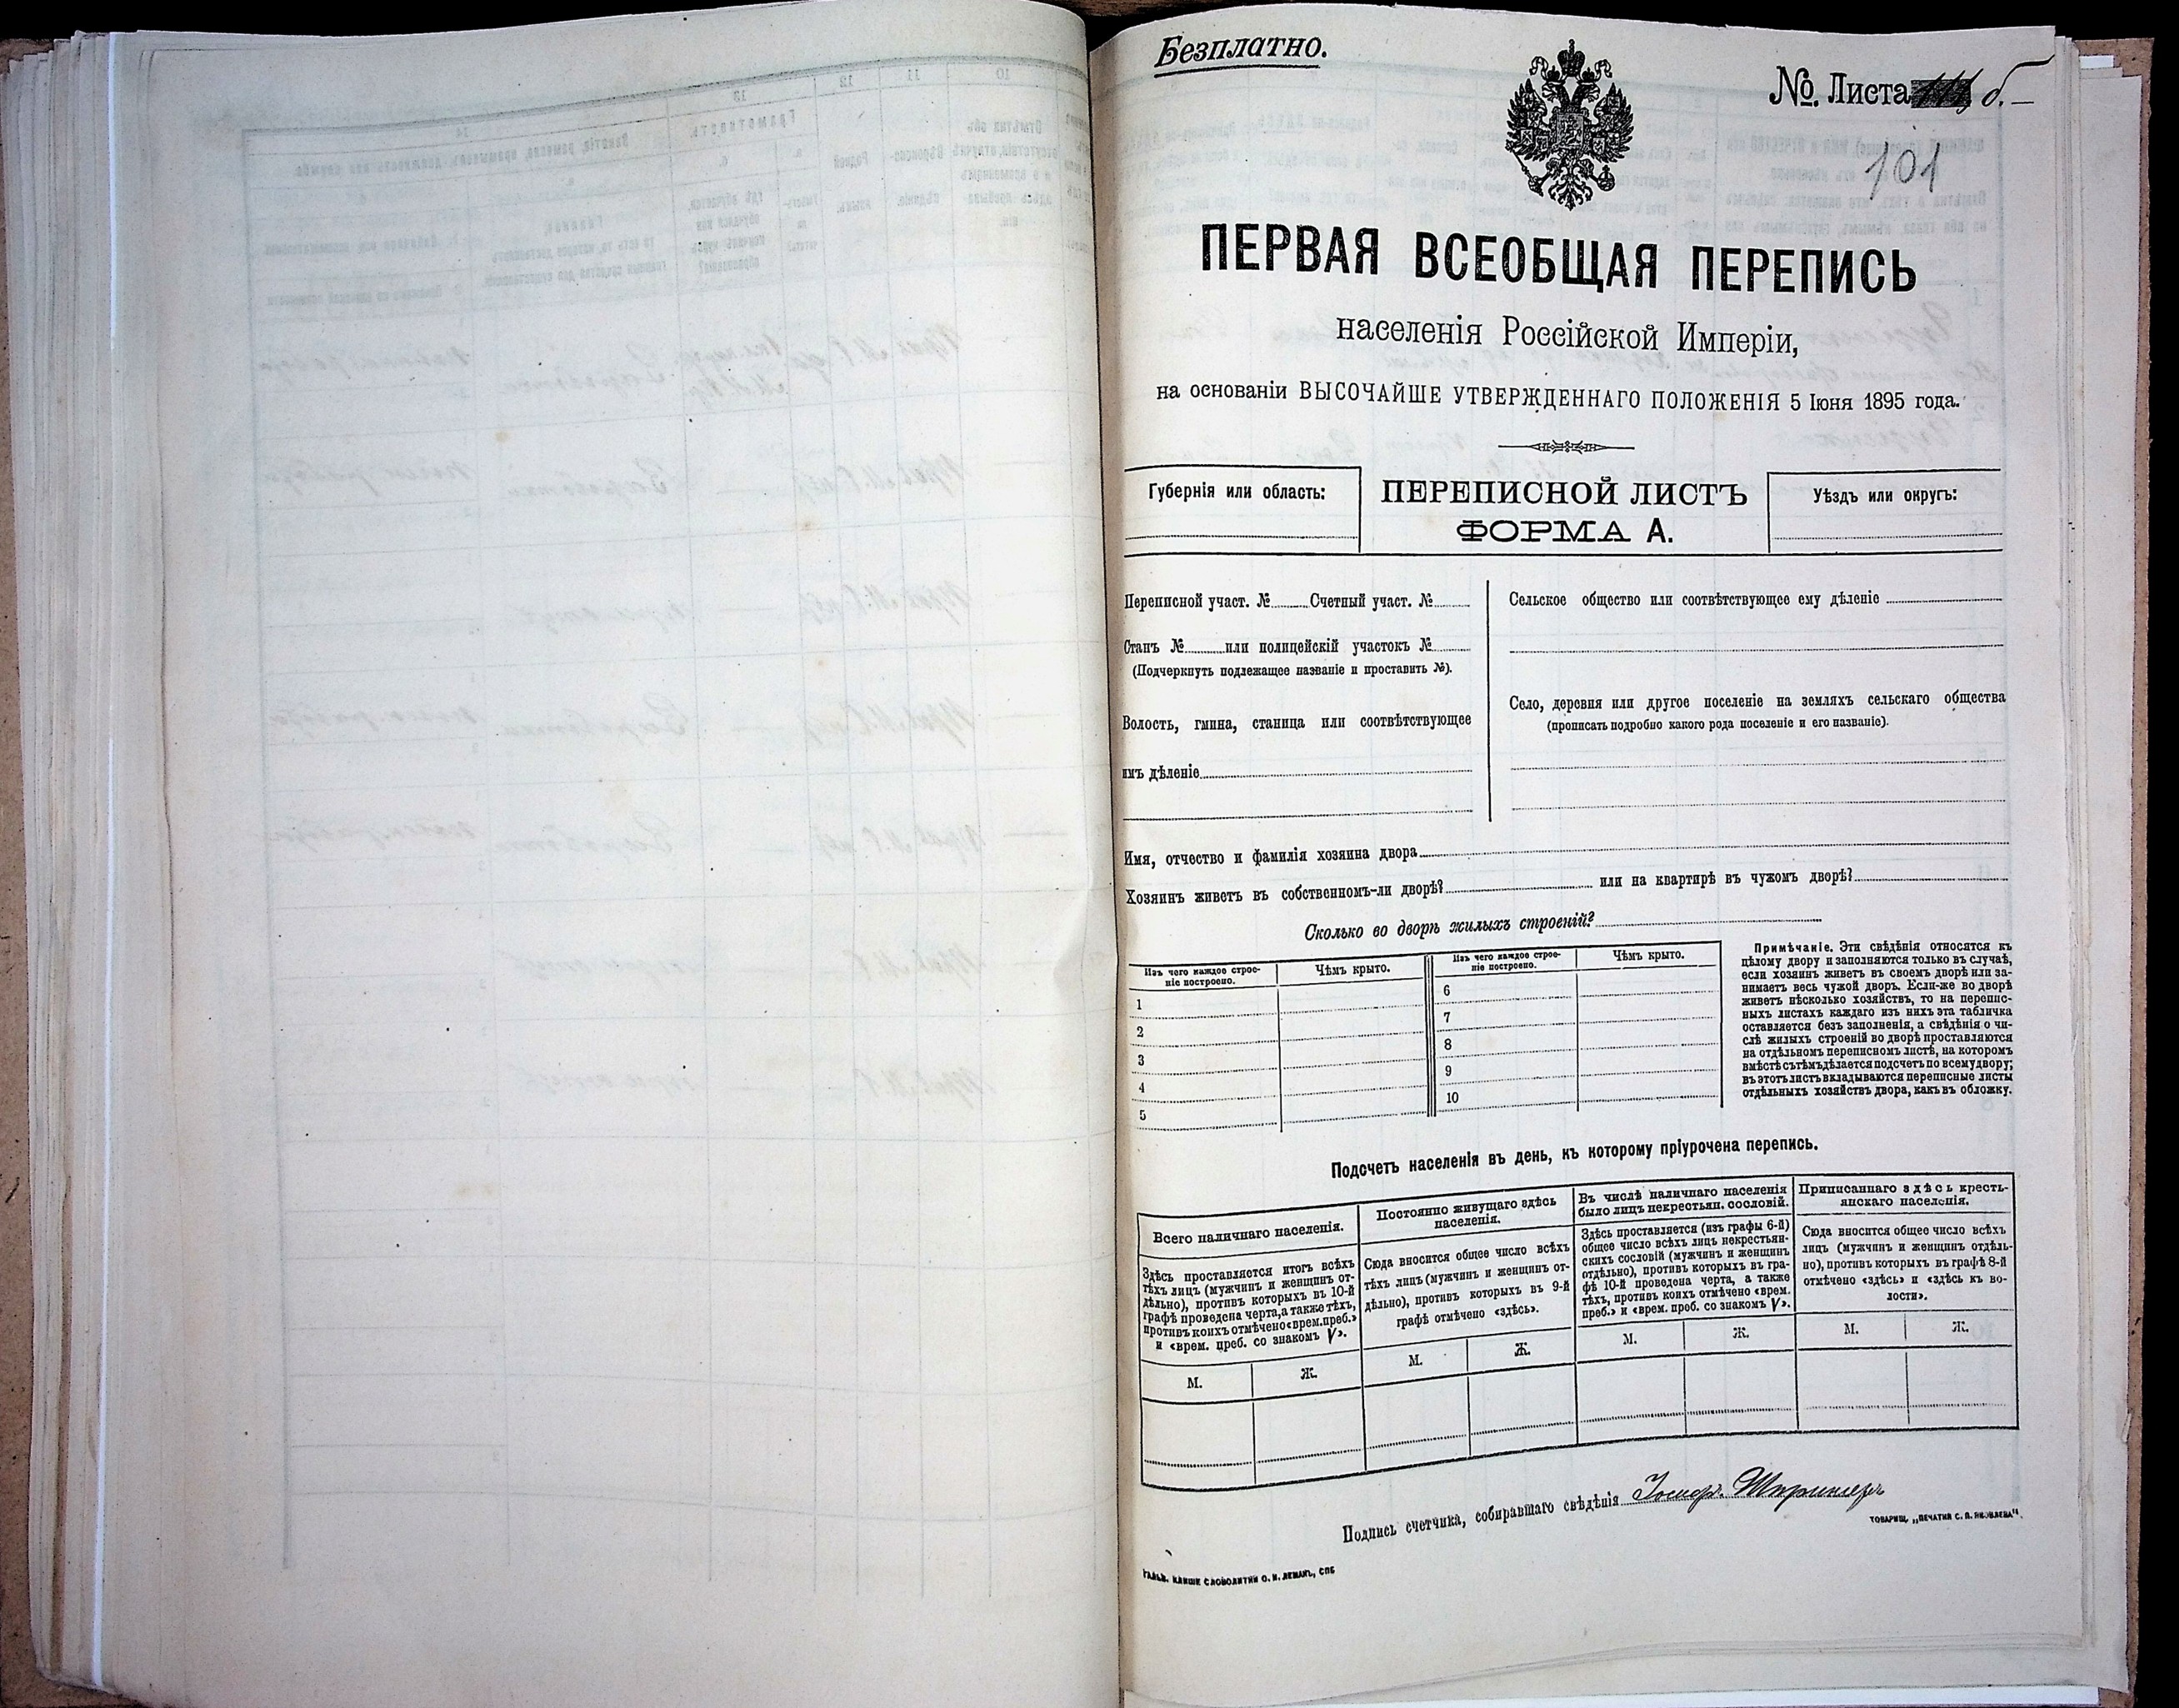 Безплатно.
№. Листа б.
101
ПЕРВАЯ ВСЕОБЩАЯ ПЕРЕПИСЬ
населенія Россійской Имперіи,
на основаніи ВЫСОЧАЙШЕ УТВЕРЖДЕННАГО ПОЛОЖЕНІЯ 5 Іюня 1895 года.
Губернія или область:
ПЕРЕПИСНОЙ ЛИСТЪ
ФОРМА А.
Уѣздъ или округъ:
Переписной участ. № Счетный участ. №
Станъ № или полицейскій участокъ №
(Подчеркнуть подлежащее названіе и проставить №).
Волость, гмина, станица или соотвѣтствующее
имъ дѣленіе
Сельское общество или соотвѣтствующее ему дѣленіе
Село, деревня или другое поселеніе на земляхъ сельскаго общества
(прописать подробно какого рода поселеніе и его названіе).
Имя, отчество и фамилія хозяина двора
Хозяинъ живетъ въ собственномъ-ли дворѣ? или на квартирѣ въ чужомъ дворѣ?
Сколько во дворѣ жилыхъ строеній?
Изъ чего каждое строе-
ніе построено.
Чѣмъ крыто.
1
2
3
4
5
Изъ чего каждое строе-
ніе построено.
Чѣмъ крыто.
6
7
8
9
10
Примѣчаніе. Эти свѣдѣнія относятся къ
цѣлому двору и заполняются только въ случаѣ,
если хозяинъ живетъ въ своемъ дворѣ или за-
нимаетъ весь чужой дворъ. Если-же во дворѣ
живетъ нѣсколько хозяйствъ, то на перепис-
ныхъ листахъ каждаго изъ нихъ эта табличка
оставляется безъ заполненія, а свѣдѣнія о чи-
слѣ жилыхъ строеній во дворѣ проставляются
на отдѣльномъ переписномъ листѣ, на которомъ
вмѣстѣ съ тѣмъ дѣлается подсчетъ по всему двору;
въ этотъ листъ вкладываются переписные листы
отдѣльныхъ хозяйствъ двора, какъ въ обложку.
Подсчетъ населенія въ день, къ которому пріурочена перепись.
Всего наличнаго населенія.
Здѣсь проставляется итогъ всѣхъ
тѣхъ лицъ (мужчинъ и женщинъ от-
дѣльно), противъ которыхъ въ 10-й
графѣ проведена черта, а также тѣхъ,
противъ коихъ отмѣчено «врем. преб.»
и «врем. преб. со знакомъ V».
М. Ж.
Постоянно живущаго здѣсь
населенія.
Сюда вносится общее число всѣхъ
тѣхъ лицъ (мужчинъ и женщинъ от-
дѣльно), противъ которыхъ въ 9-й
графѣ отмѣчено «здѣсь».
М. Ж.
Въ числѣ наличнаго населенія
было лицъ некрестьян. сословій.
Здѣсь проставляется (изъ графы 6-й)
общее число всѣхъ лицъ некрестьян-
скихъ сословій (мужчинъ и женщинъ
отдѣльно), противъ которыхъ въ гра-
фѣ 10-й проведена черта, а также
тѣхъ, противъ коихъ отмѣчено «врем.
преб.» и «врем. преб. со знакомъ V».
М. Ж.
Приписаннаго здѣсь кресть-
янскаго населенія.
Сюда вносится общее число всѣхъ
лицъ (мужчинъ и женщинъ отдѣль-
но), противъ которыхъ въ графѣ 8-й
отмѣчено «здѣсь» и «здѣсь къ во-
лости».
М. Ж.
Подпись счетчика, собиравшаго свѣдѣнія
ТОВАРИЩ. „ПЕЧАТНЯ С. П. ЯКОВЛЕВА“.
ГАЛЬВ. КЛИШЕ СЛОВОЛИТНИ О. И. ЛЕМАНЪ, СПБ